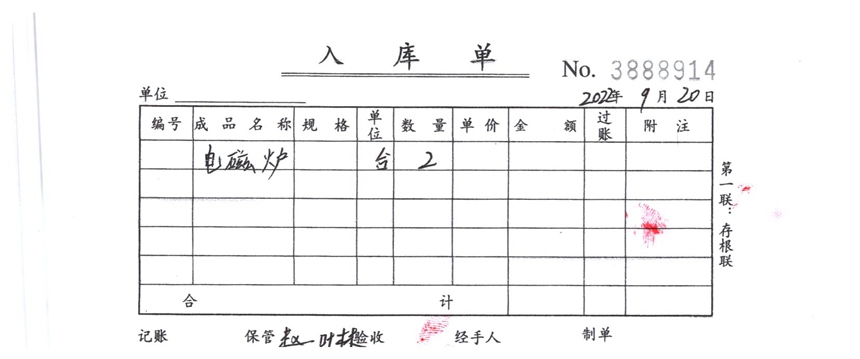 入库单
No. 3888914
单位 2022年9月20日
编号 成品名称 规格 单位 数量 单价 金额 过账 附注
电磁炉 台 2
合计
第一联：存根联
记账 保管 验收 经手人 制单